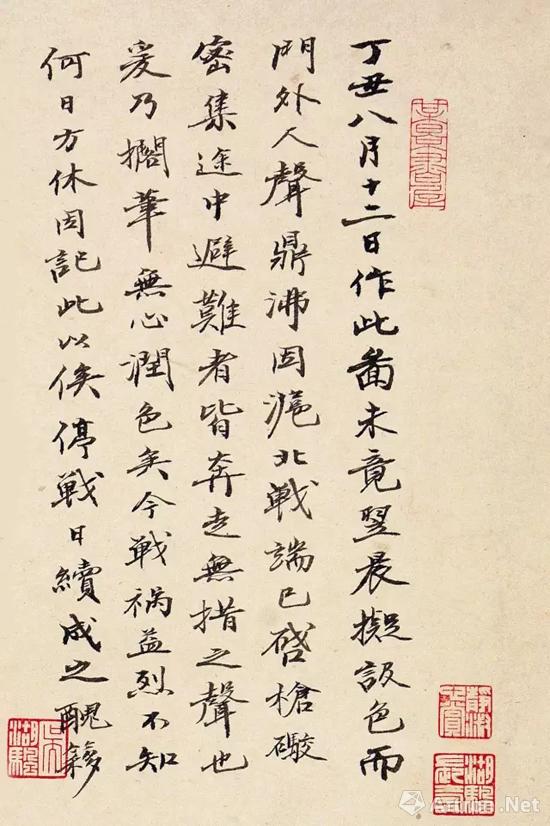 丁丑八月十二日作此啚未竟翌晨擬設色而
門外人聲鼎沸因滬北戦端已啓槍礮
密集途中避難者皆奔走無措之聲也
爰乃擱筆無心潤色矣今戦禍益烈不知
何日方休因記此以俟停戦日續成之醜簃
梅景書屋
吳湖颿
Artron.Net